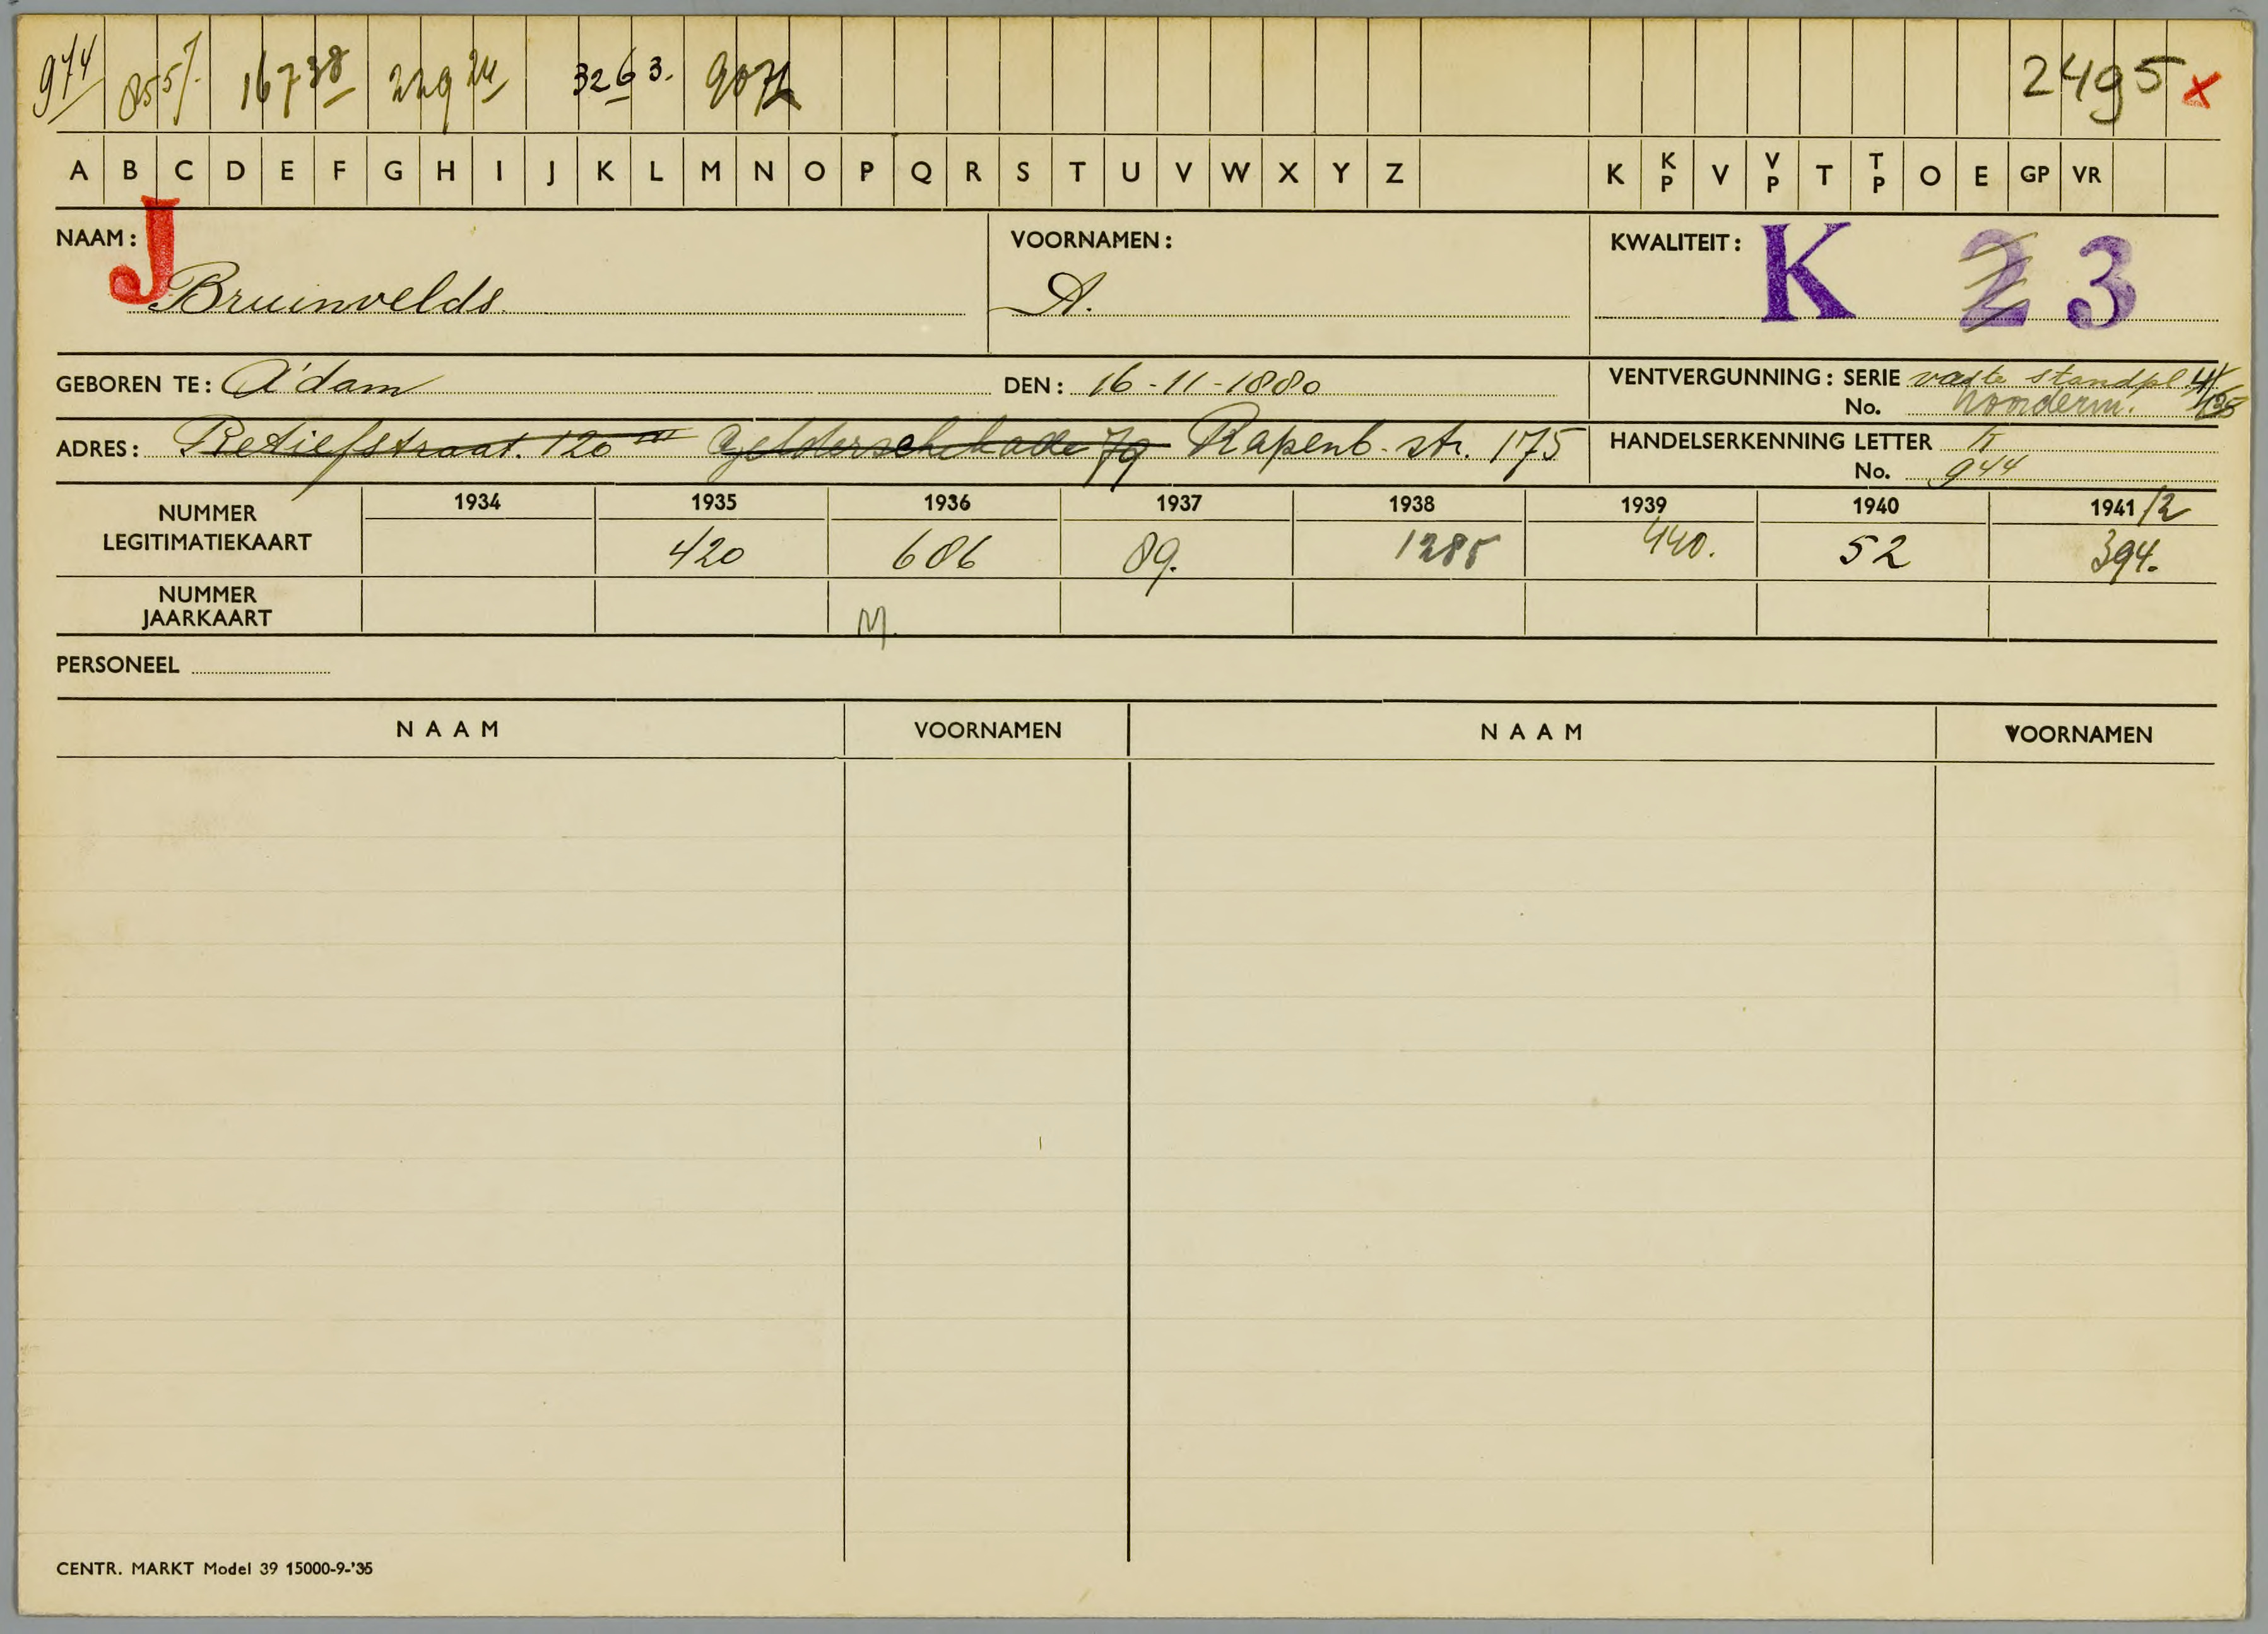 974 855/. 16738 22924 3263. 907 2495 x
A B C D E F G H I J K L M N O P Q R S T U V W X Y Z K KP V VP T TP O E GP VR
J
NAAM: Bruinvelds. VOORNAMEN: A. KWALITEIT: K 2 3
GEBOREN TE: A'dam DEN: 16-11-1880 VENTVERGUNNING: SERIE vaste standpl.
No. Noorderm.
ADRES: Retiefstraat. 120 III Gelderschekade 79 Rapenb. str. 175 HANDELSERKENNING LETTER K
No. 944
NUMMER LEGITIMATIEKAART 1934 1935 1936 1937 1938 1939 1940 1941/2
420 686 89. 1285 440. 52 394.
NUMMER JAARKAART M.
PERSONEEL
NAAM VOORNAMEN NAAM VOORNAMEN
CENTR. MARKT Model 39 15000-9-'35